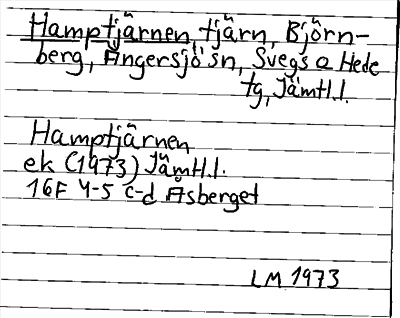 Hamptjärnen, tjärn, Björn-
berg, Ängersjö sn, Svegs o Hede
tg, Jämtl.l.
Hamptjärnen
ek (1973) Jämtl.l.
16F 4-5 c-d Åsberget
LM 1973